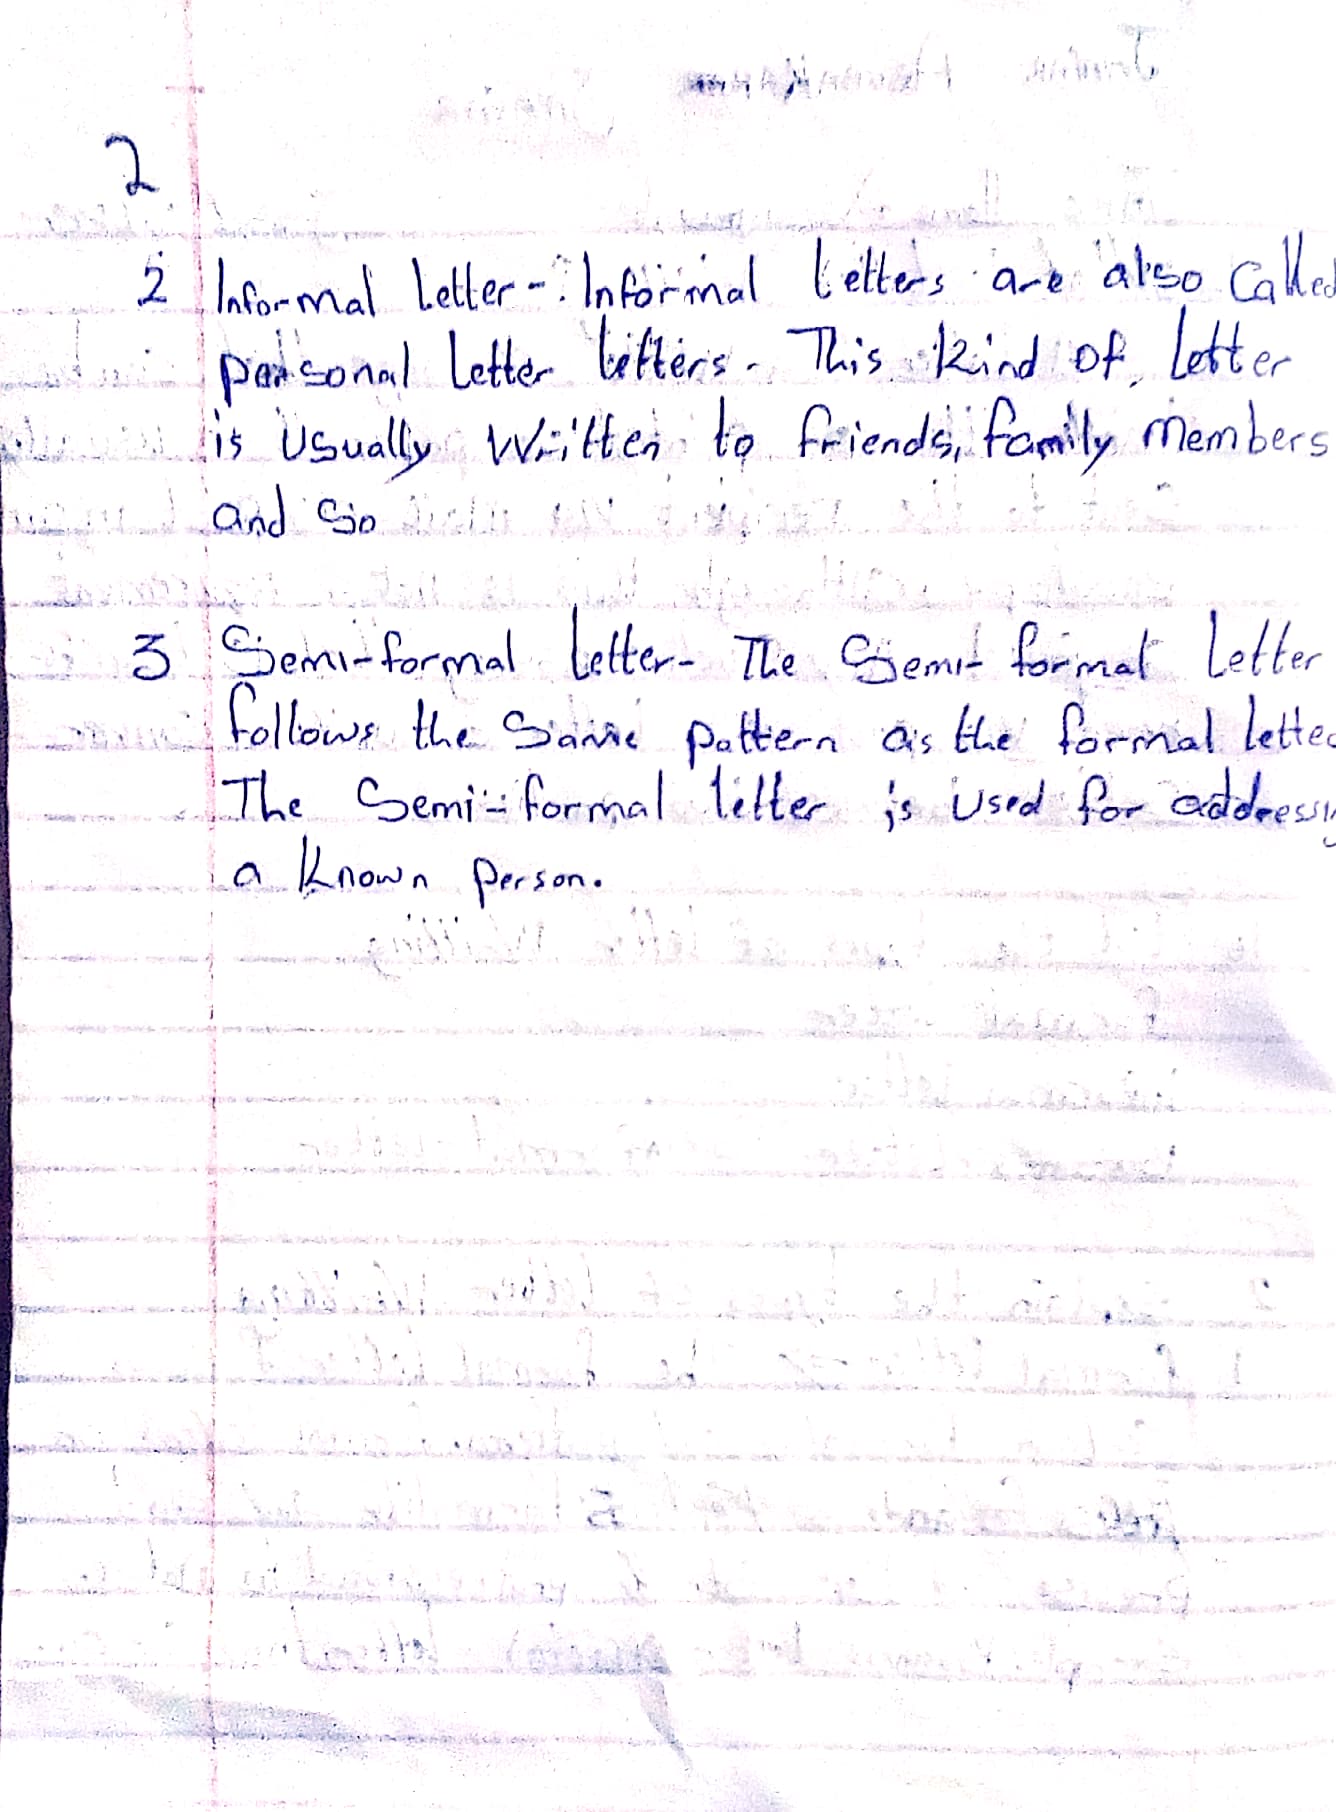 2
2 Informal letter - Informal letters are also Called
personal letter letters. This kind of letter
is usually written to friends, family members
and so
3 Semi-formal letter - The Semi-formal letter
follows the same pattern as the formal letter
The Semi-formal letter is used for addressin
a known person.